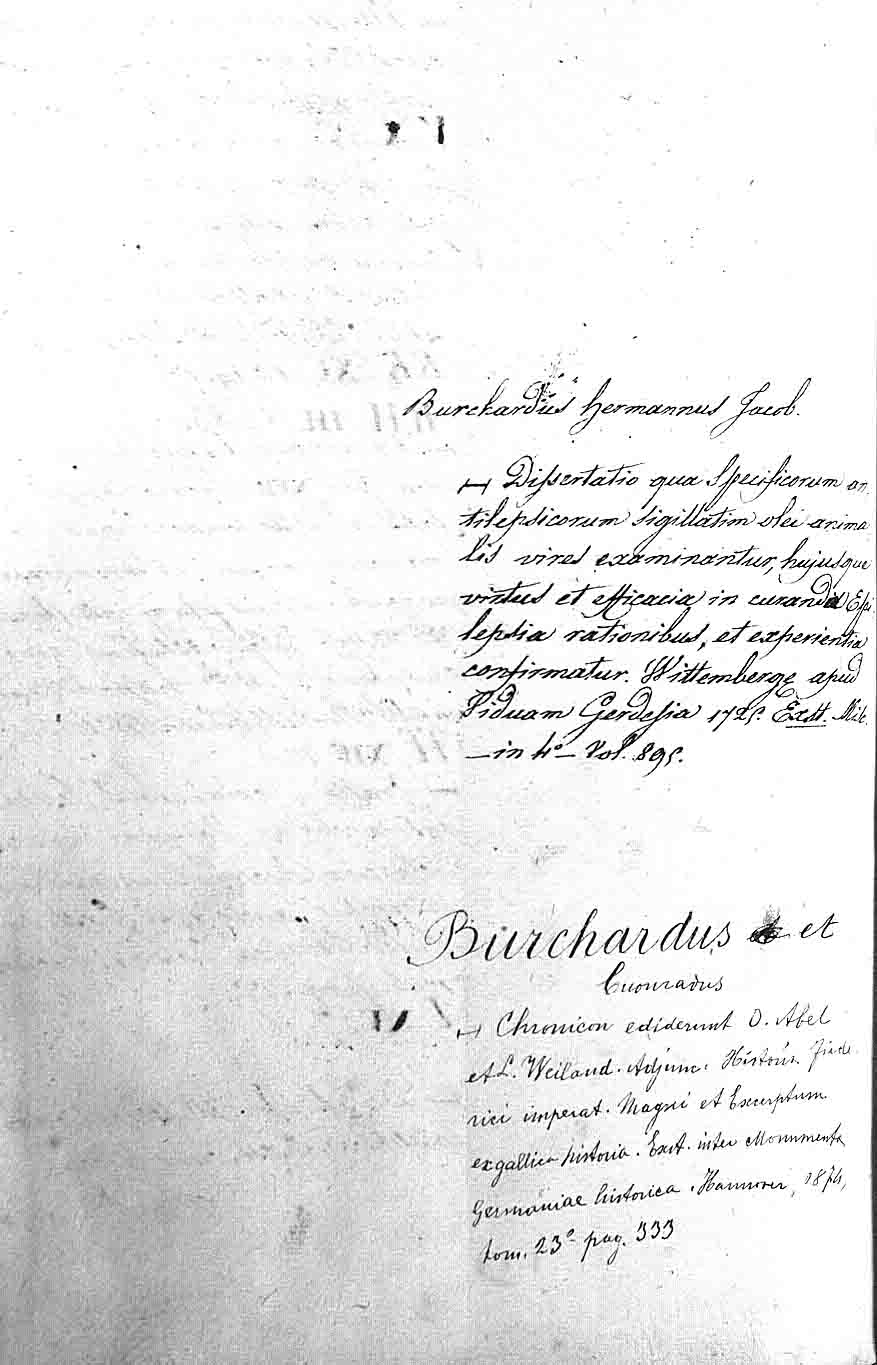 Burchardus Hermannus Jacob.
⊢ Dissertatio qua Specificorum an
tilepsicorum sigillatim olei anima
lis vires examinantur, hujusque
virtus et efficacia in curanda Epi
lepsia rationibus, et experientia
confirmatur. Wittembergę apud
Viduam Gerdesia 1725. Exst. Misc.
— in 4º — Vol. 895.
Burchardus et
Cuonradus
⊢ Chronicon ediderunt O. Abel
et L. Weiland. Adjunc. Histor. Fride
rici imperat. Magni et Excerptum
ex gallica historia. Exst. inter Monumenta
Germaniae historica. Hannover, 1874,
tom. 23º pag. 333